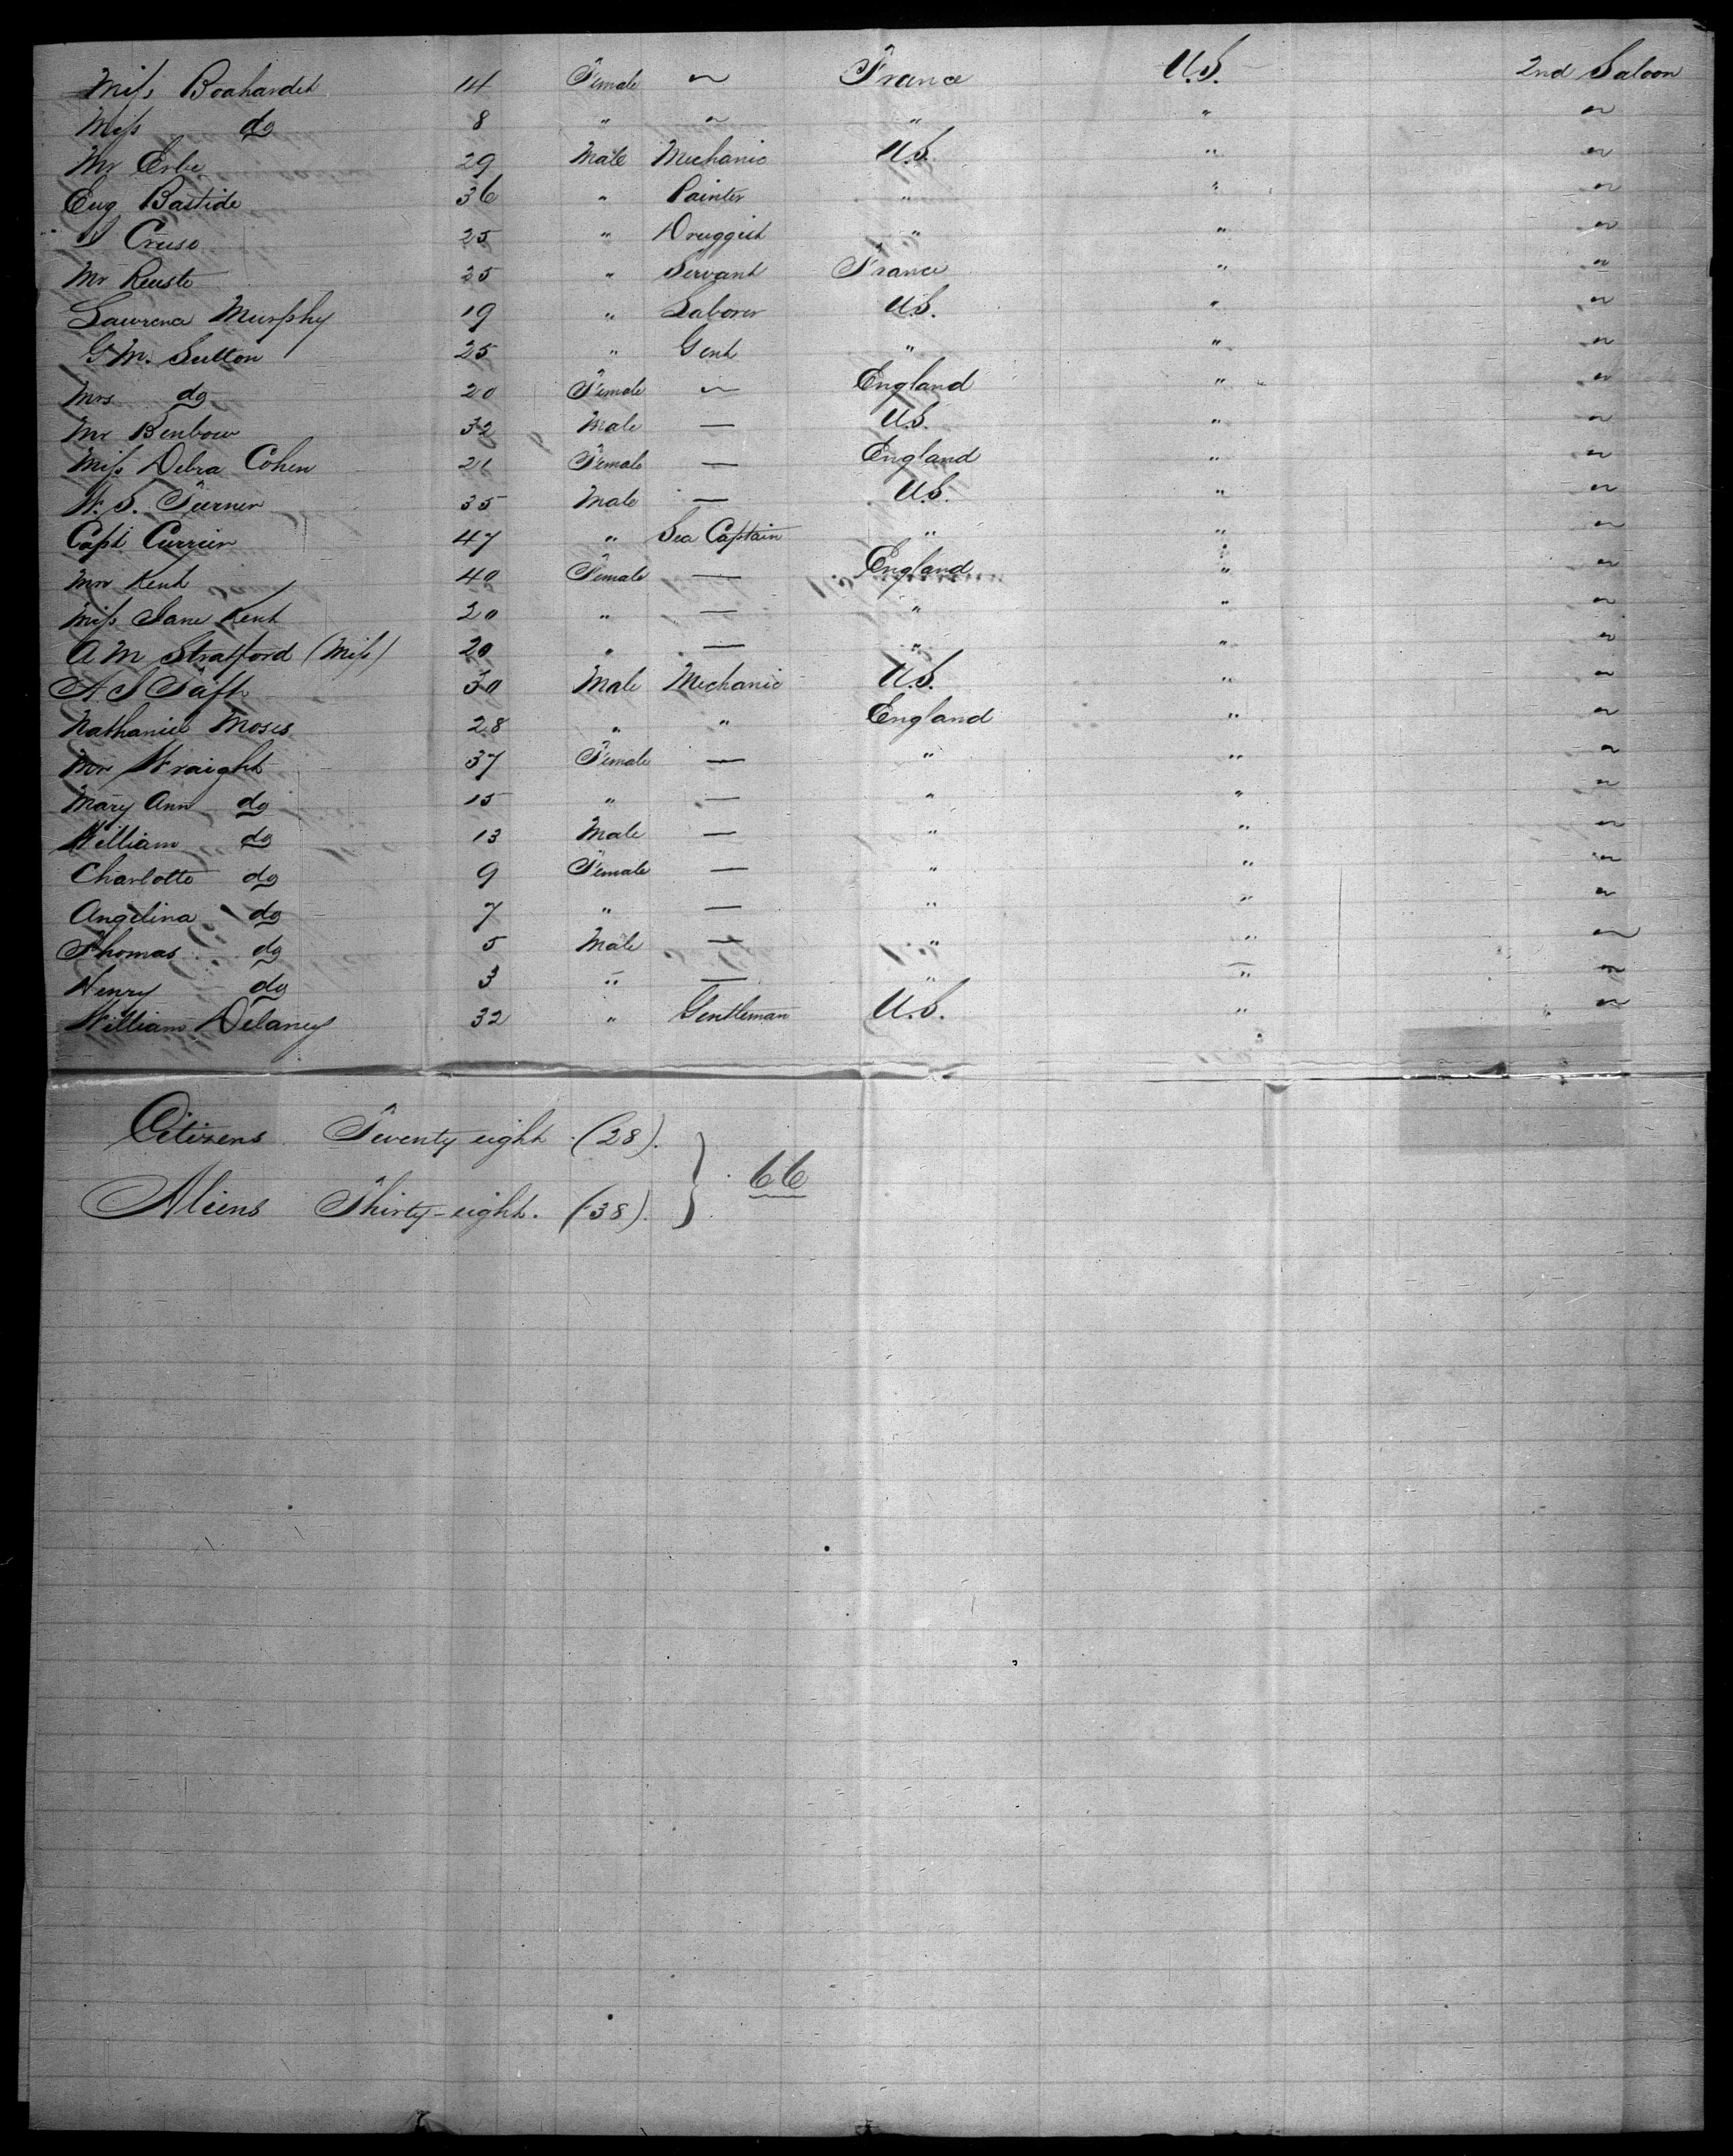 Miss Boahardet 14 Female ~ France U.S. 2nd Saloon
Miss do 8 " ~ " " "
Mr Erbe 29 Male Mechanic U.S. " "
Eug Bastide 36 " Painter " " "
Cruso 25 " Druggist " " "
Mr Reuste 25 " Servant France " "
Lawrence Murphy 19 " Laborer U.S. " "
G M. Sutton 25 " Gent " " "
Mrs do 20 Female ~ England " "
Mr Benbow 32 Male — U.S. " "
Miss Debra Cohen 21 Female — England " "
W. S. Turner 35 Male — U.S. " "
Capt Currier 47 " Sea Captain " " "
Mrs Kent 40 Female — England " "
Miss Jane Kent 20 " — " " "
A M Stratford (Miss) 20 " — " " "
A. S Taft 30 Male Mechanic U.S. " "
Nathaniel Moses 28 " " England " "
Mrs Wraight 37 Female — " " "
Mary Ann do 15 " — " " "
William do 13 Male — " " "
Charlotte do 9 Female — " " "
Angelina do 7 " — " " "
Thomas do 5 Male — " " "
Henry do 3 " — " " "
William Delaney 32 " Gentleman U.S. " "
Citizens Twenty eight (28).
66
Aliens Thirty-eight. (38).